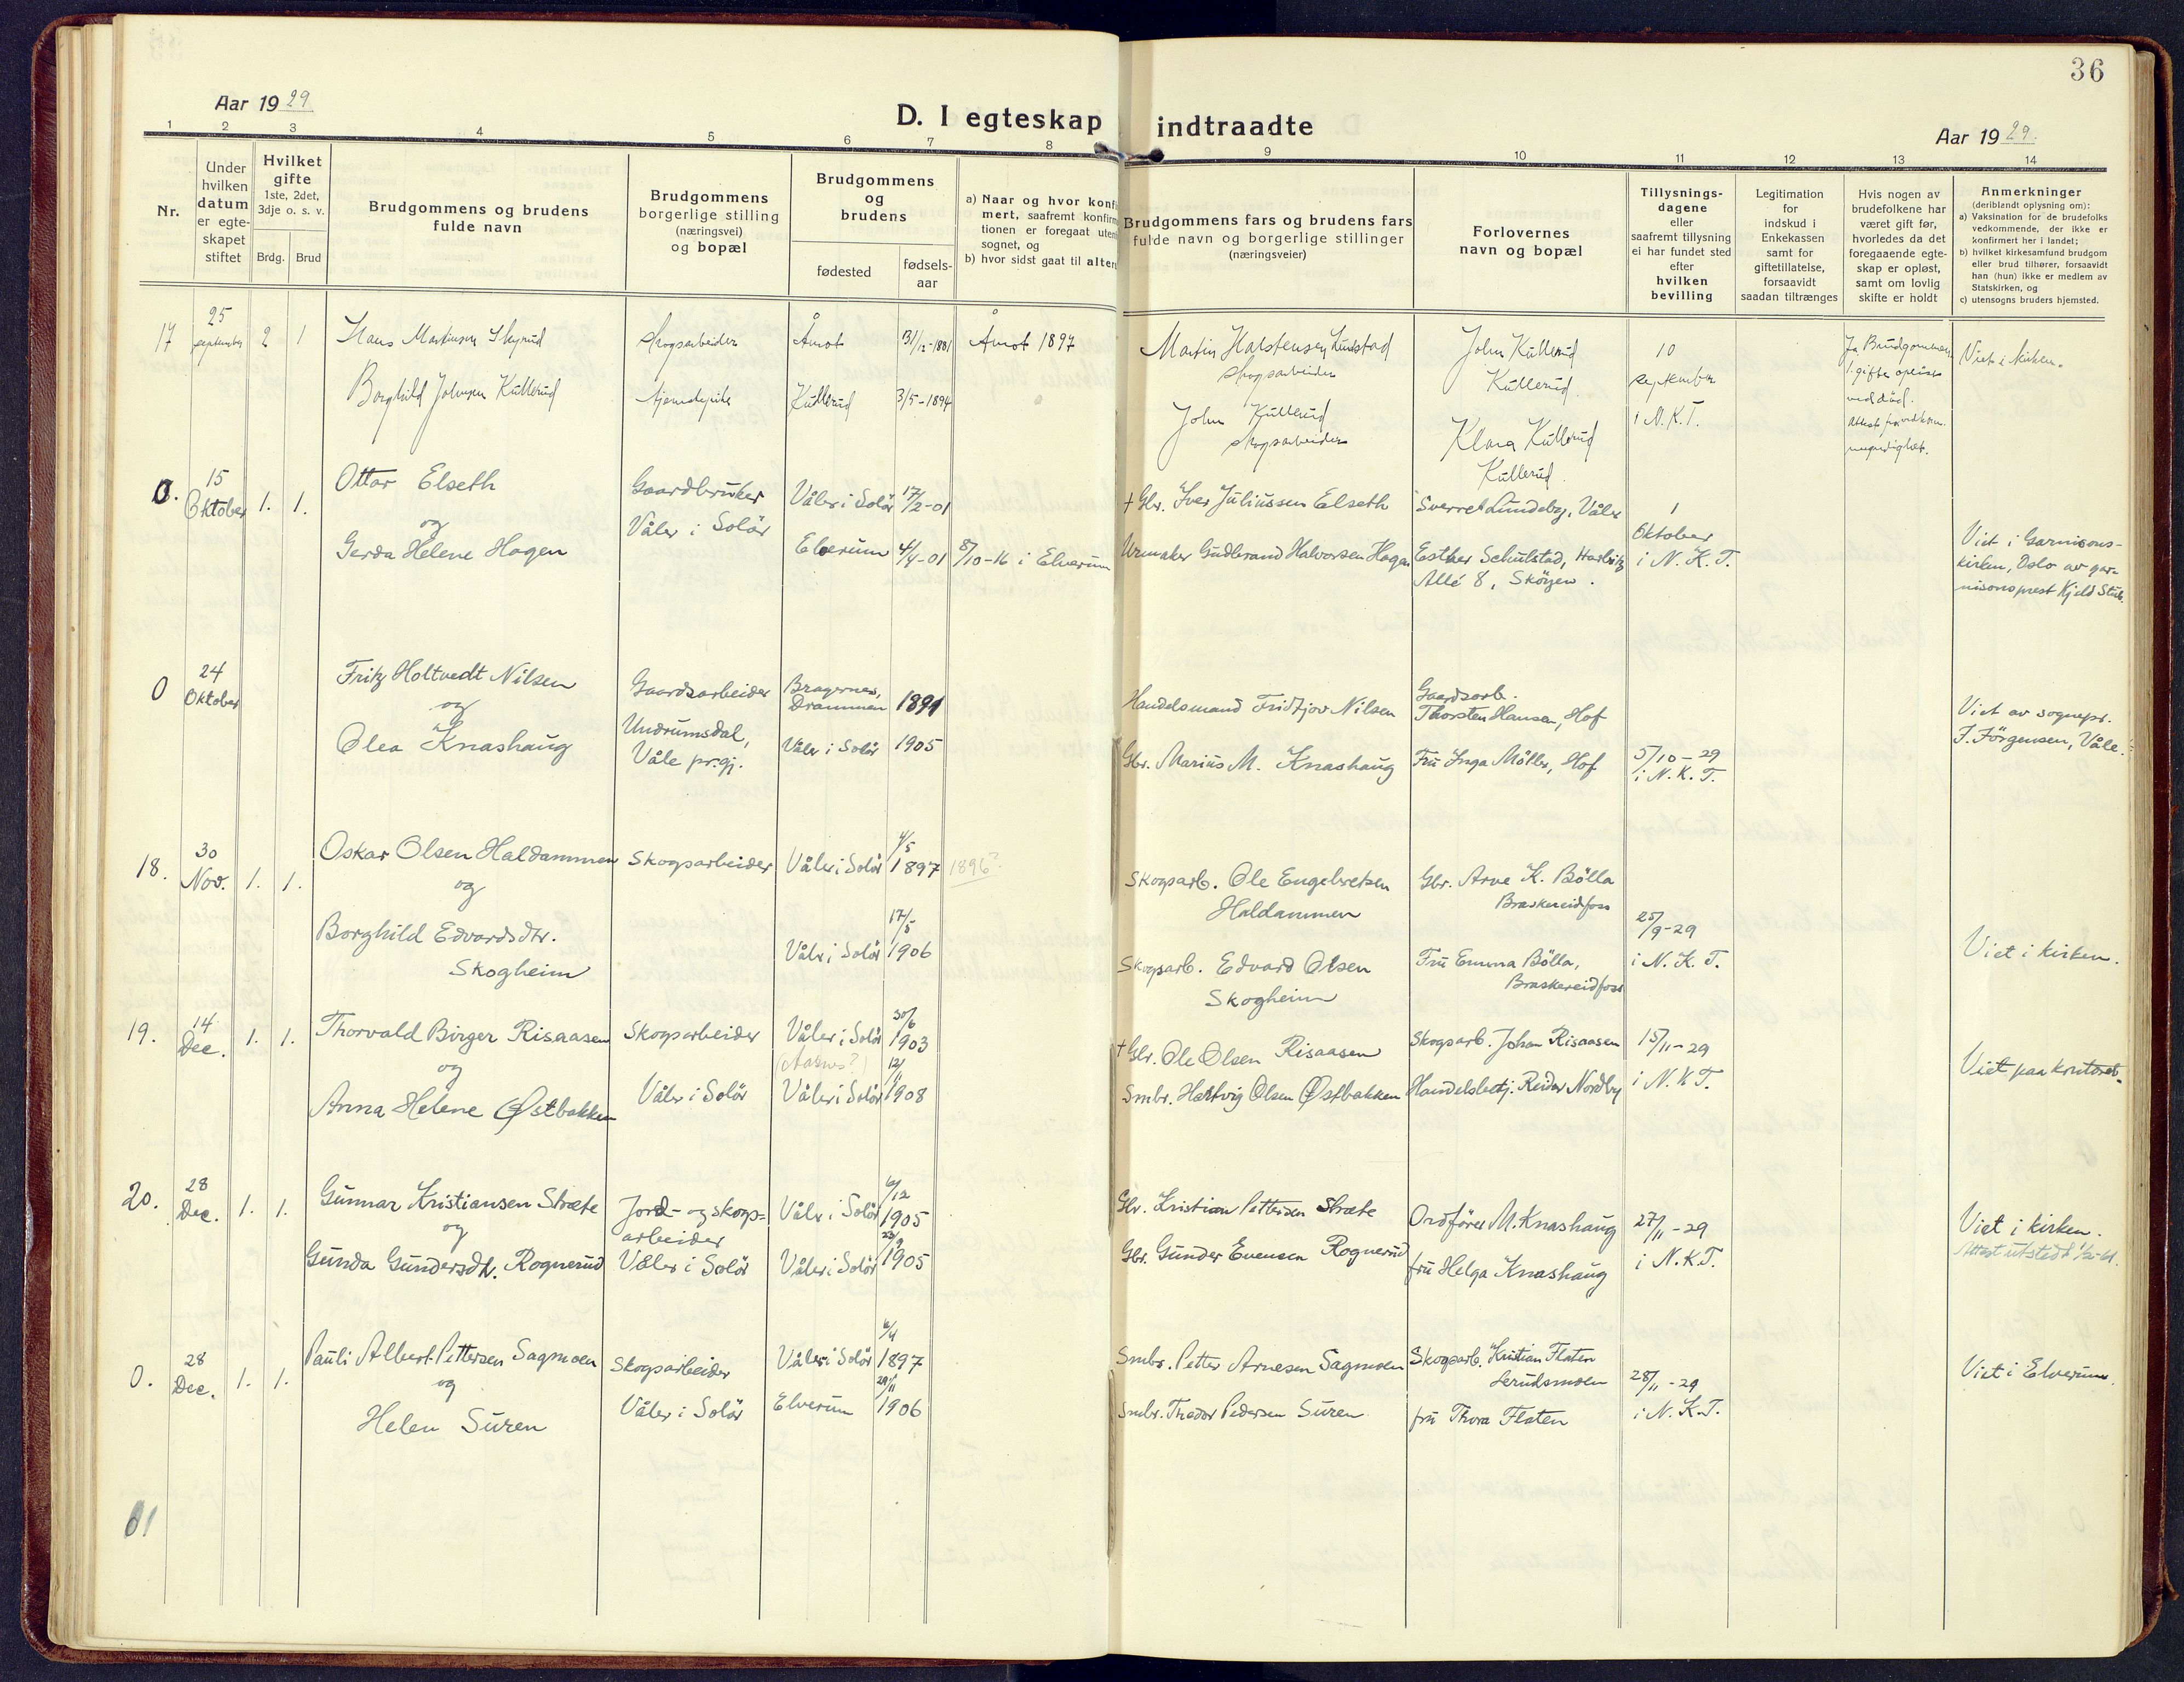 36
Aar 1929
D. I egteskap indtraadte
Aar 1929
1 2 3 4 5 6 7 8 9 10 11 12 13 14
Nr.
Under
hvilken
datum
er egte-
skapet
stiftet
Hvilket
gifte
1ste, 2det,
3dje o. s. v.
Brdg. Brud
Brudgommens og brudens
fulde navn
Brudgommens
borgerlige stilling
(næringsvei)
og bopæl
Brudgommens
og
brudens
fødested
fødsels-
aar
a) Naar og hvor konfi
mert, saafremt konfirm
tionen er foregaat uten
sognet, og
b) hvor sidst gaat til alter
Brudgommens fars og brudens fars
fulde navn og borgerlige stillinger
(næringsveier)
Forlovernes
navn og bopæl
Tillysnings-
dagene
eller
saafremt tillysning
ei har fundet sted
efter
hvilken
bevilling
Legitimation
for
indskud i
Enkekassen
samt for
giftetillatelse,
forsaavidt
saadan tiltrænges
Hvis nogen av
brudefolkene har
været gift før,
hvorledes da det
foregaaende egte-
skap er opløst,
samt om lovlig
skifte er holdt
Anmerkninger
(deriblandt oplysning om):
a) Vaksination for de brudefolks
vedkommende, der ikke er
konfirmert her i landet;
b) hvilket kirkesamfund brudgom
eller brud tilhører, forsaavidt
han (hun) ikke er medlem av
Statskirken, og
c) utensogns bruders hjemsted.
17
25
september
2 1
Hans Martinsen Skyrud
Borghild Johnsen Küllerud
Skogsarbeider
Åmot
Küllerud
31/12-1881
3/5-1894
Åmot 1897
Martin Halstensen
skogsarbeider
John Küllerud
skogsarbeider
John Küllerud
Küllerud
Klara Küllerud
Küllerud
10
september
i N.K.T.
Ja, Brudgommen
ved død.
Viet i kirken.
0.
15
Oktober
1. 1.
Ottar Elseth
og
Gerda Helene Hagen
Gaardbruker
Våler i Solör
Våler i Solör
Elverum
17/2-01
4/4-01
8/10-16 i Elverum
+ Gbr. Iver Juliussen Elseth
Urmaker Gudbrand Halvorsen Hagen
Sverre Lundeby, Våler
Esther Schulstad, Harbitz
Allé 8, Sköyen.
1
Oktober
i N. K. T.
Viet i Garnisons-
kirken, Oslo av gar-
nisonsprest Kjeld Stub.
0
24
Oktober
Fritz Holtvedt Nilsen
og
Olea Knashaug
Gaardsarbeider
Undrumsdal,
Våle pr.gj.
Bragernes,
Drammen
Våler i Solör
1891
1905
Handelsmand Fridtjov Nilsen
Gbr. Marius M. Knashaug
Gaardsarb.
Thorsten Hansen, Hof
Fru Inga Möller, Hof
5/10-29
i N. K. T.
Viet av sognepr.
F. Jörgensen, Våle.
18.
30
Nov.
1. 1.
Oskar Olsen Haldammen
og
Borghild Edvardsdtr.
Skogheim
Skogsarbeider
Våler i Solör
Våler i Solör
4/5
1897
1896?
17/5
1906
Skogsarb. Ole Engebretsen
Haldammen
Skogsarb. Edvard Olsen
Skogheim
Gbr. Arve K. Bölla
Braskereidfoss
Fru Emma Bölla,
Braskereidfoss
25/9-29
i N. K. T.
Viet i kirken.
19.
14
Dec.
1. 1.
Thorvald Birger Risaasen
og
Anna Helene Østbakken
Skogsarbeider
Våler i Solör
Våler i Solör
(Aasnes?)
Våler i Solör
30/6
1903
12/11
1908
+ Gbr. Ole Olsen Risaasen
Smbr. Hartvig Olsen Østbakken
Skogsarb. Johan Risaasen
Handelsbetj. Reidar Nordby
15/11-29
i N. K T.
Viet paa kontoret.
20.
28
Dec.
1. 1.
Gunnar Kristiansen Stræte
og
Gunda Gundersdtr. Rognerud
Jord- og skogs-
arbeider
Våler i Solör
Våler i Solör
Våler i Solör
6/12
1905
23/9
1905
Gbr. Kristian Pettersen Stræte
Gbr. Gunder Evensen Rognerud
Ordförer M. Knashaug
fru Helga Knashaug
27/11-29
i N.K.T.
Viet i kirken.
Attest utstedt 1/2-61.
0.
28
Dec.
1. 1.
Pauli Albert Pettersen Sagmoen
og
Helen Suren
Skogsarbeider
Våler i Solör
Våler i Solör
Elverum
6/4
1897
29/11
1906
Smbr. Petter Arnesen Sagmoen
Smbr. Theodor Pedersen Suren
Skogsarb. Kristian Flaten
Lerudsmoen
fru Thora Flaten
28/11-29
i N. K.T.
Viet i Elverum.